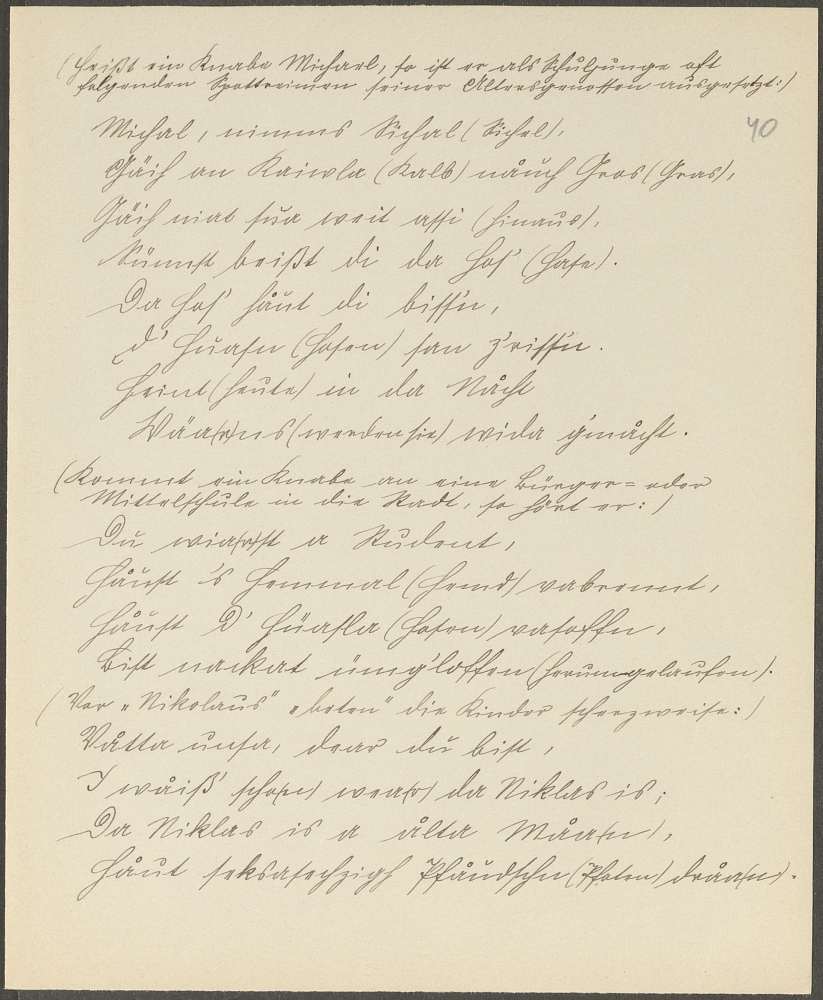 (Heißt ein Knabe Michael, so ist er als Schuljunge oft
folgenden Spottreimen seiner Altersgenossen ausgesetzt:)
40
Michal, nimms Sichal (Sichel),
Gäih an Kaiwla (Kalb) nåuch Gros (Gras),
Gäih niat sua weit assi (hinaus),
Sünnst beißt di da Hos' (Hase).
Da Hos' håut di biss'n,
d' Huasn (Hosen) san z'riss'n.
Heint (heute) in da Nåcht
Wäa(r)ns (werden sie) wida g'måcht.
(Kommt ein Knabe an eine Bürger= oder
Mittelschule in die Stadt, so hört er:)
Du wia(r)st a Student,
Håust 's Hemmal (Hemd) vabrennt,
Håust d' Hüasla (Hosen) vasoffn,
Bist nackat ümg'loffen (herumgelaufen).
(Vor „Nikolaus" „beten" die Kinder scherzweise:)
Våtta unsa, dear du bist,
I wåiß' scho(n) wea(r) da Niklas is;
Da Niklas is a ålta Måa(n),
Håut seksasechzigh Pfåudschn (Pfoten) dråa(n).